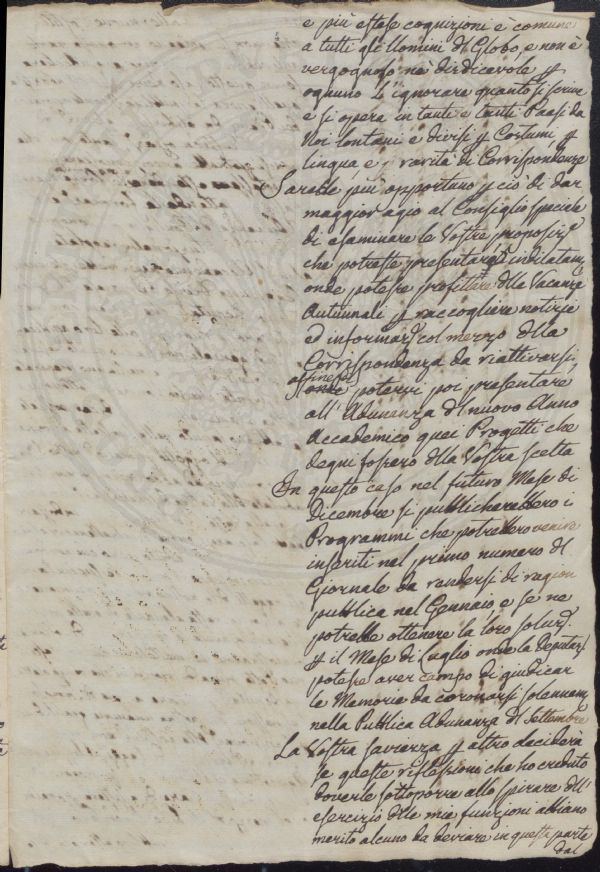 e più estese cognizioni è comune
a tutti gli Uomini del Globo, e non è
vergognoso nè disdicevole p
ognuno l'ignorare quanto si scrive
e si opera in tanti e tanti Paesi da
Noi lontani e divisi p Costumi, p
lingua, e p rarità di Corrispondenze
Sarebbe più opportuno p ciò di dar
maggior agio al Consiglio speciale
di esaminare le Vostre proposiz.e
che potreste presentargli indilatam.e
onde potesse profittare dlle Vacanze
Autunnali p raccogliere notizie
ed informarsi col mezzo dlla
Corrispondenza da riattivarsi,
affinchè
potersi poi presentare
all' Adunanza dl nuovo Anno
Accademico quei Progetti che
degni fossero dlla Vostra scelta
In questo caso nel futuro Mese di
Dicembre si pubblicherebbero i
Programmi che potrebbero venire
inseriti nel primo numero dl
Giornale da rendersi di ragion
pubblica nel Gennaio, e se ne
potrebbe ottenere la loro soluz.
p il Mese di Luglio onde la Deputaz.
potesse aver campo di giudicar
le Memorie da coronarsi solennem.
nella Pubblica Adunanza dl Settembre
La Vostra saviezza p altro deciderà
se queste riflessioni che ho creduto
doverle sottoporre allo spirare dll'
esercizio dlle mie funzioni abbiano
merito alcuno da deviare in questa parte
dal